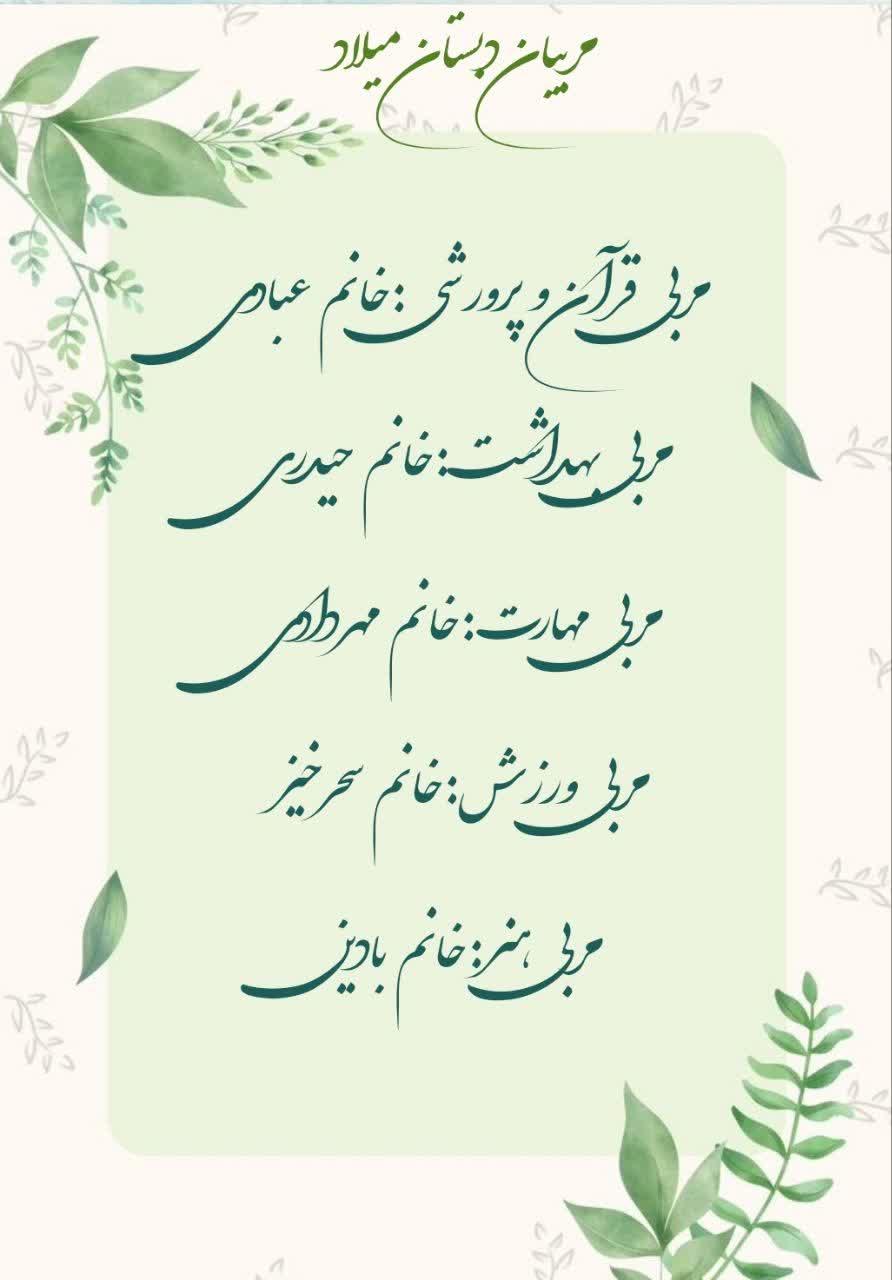 مربیان دبستان میلاد
مربی قرآن و پرورشی :خانم عبادی
مربی بهداشت:خانم حیدری
مربی مهارت:خانم مهردادی
مربی ورزش:خانم سحرخیز
مربی هنر:خانم بادینی